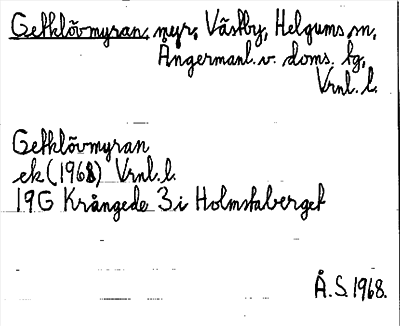 Getklövmyran, myr, Västby, Helgums sn,
Ångermanl. v. doms. tg,
Vrnl. l.
Getklövmyran
ek (1968) Vrnl. l.
19G Krångede 3i Holmstaberget
Å.S. 1968.